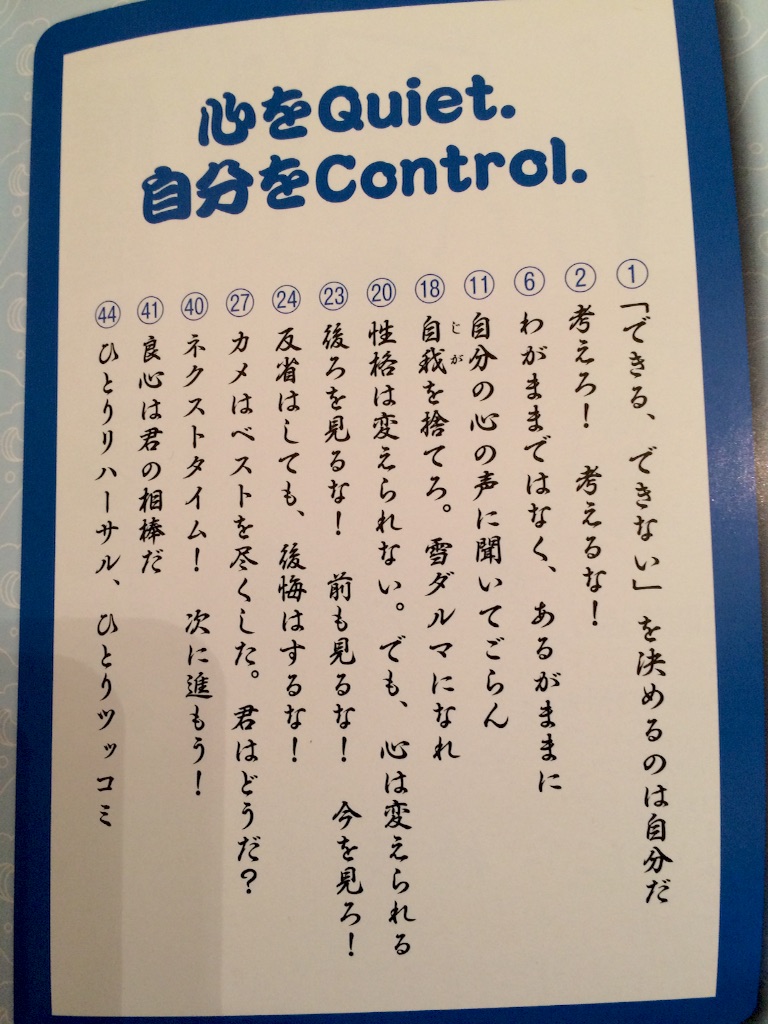 心をQuiet.
自分をControl.
①「できる、できない」を決めるのは自分だ
②考えろ！　考えるな！
⑥わがままではなく、あるがままに
⑪自分の心の声に聞いてごらん
⑱自我を捨てろ。雪ダルマになれ
じが
⑳性格は変えられない。でも、心は変えられる
㉓後ろを見るな！　前も見るな！　今を見ろ！
㉔反省はしても、後悔はするな！
㉗カメはベストを尽くした。君はどうだ？
㊵ネクストタイム！　次に進もう！
㊶良心は君の相棒だ
㊹ひとりリハーサル、ひとりツッコミ